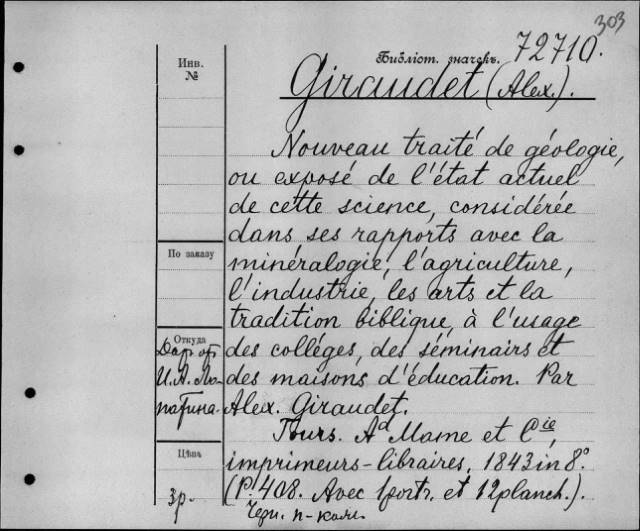 303
Библіот. значекъ. 72710.
Инв.
№
Giraudet (Alex.).
Nouveau traité de géologie,
ou exposé de l'état actuel
de cette science, considérée
dans ses rapports avec la
По заказу
minéralogie, l'agriculture,
l'industrie, les arts et la
tradition biblique, à l'usage
Откуда
Дар от
И. А. Ло-
патина.
des colléges, des séminairs et
des maisons d'éducation. Par
Alex. Giraudet.
Tours. Ad Mame et Cie,
Цѣна
3р.
imprimeurs-libraires, 1843 in 8°.
(P. 408. Avec 1 portr. et 12 planch.).